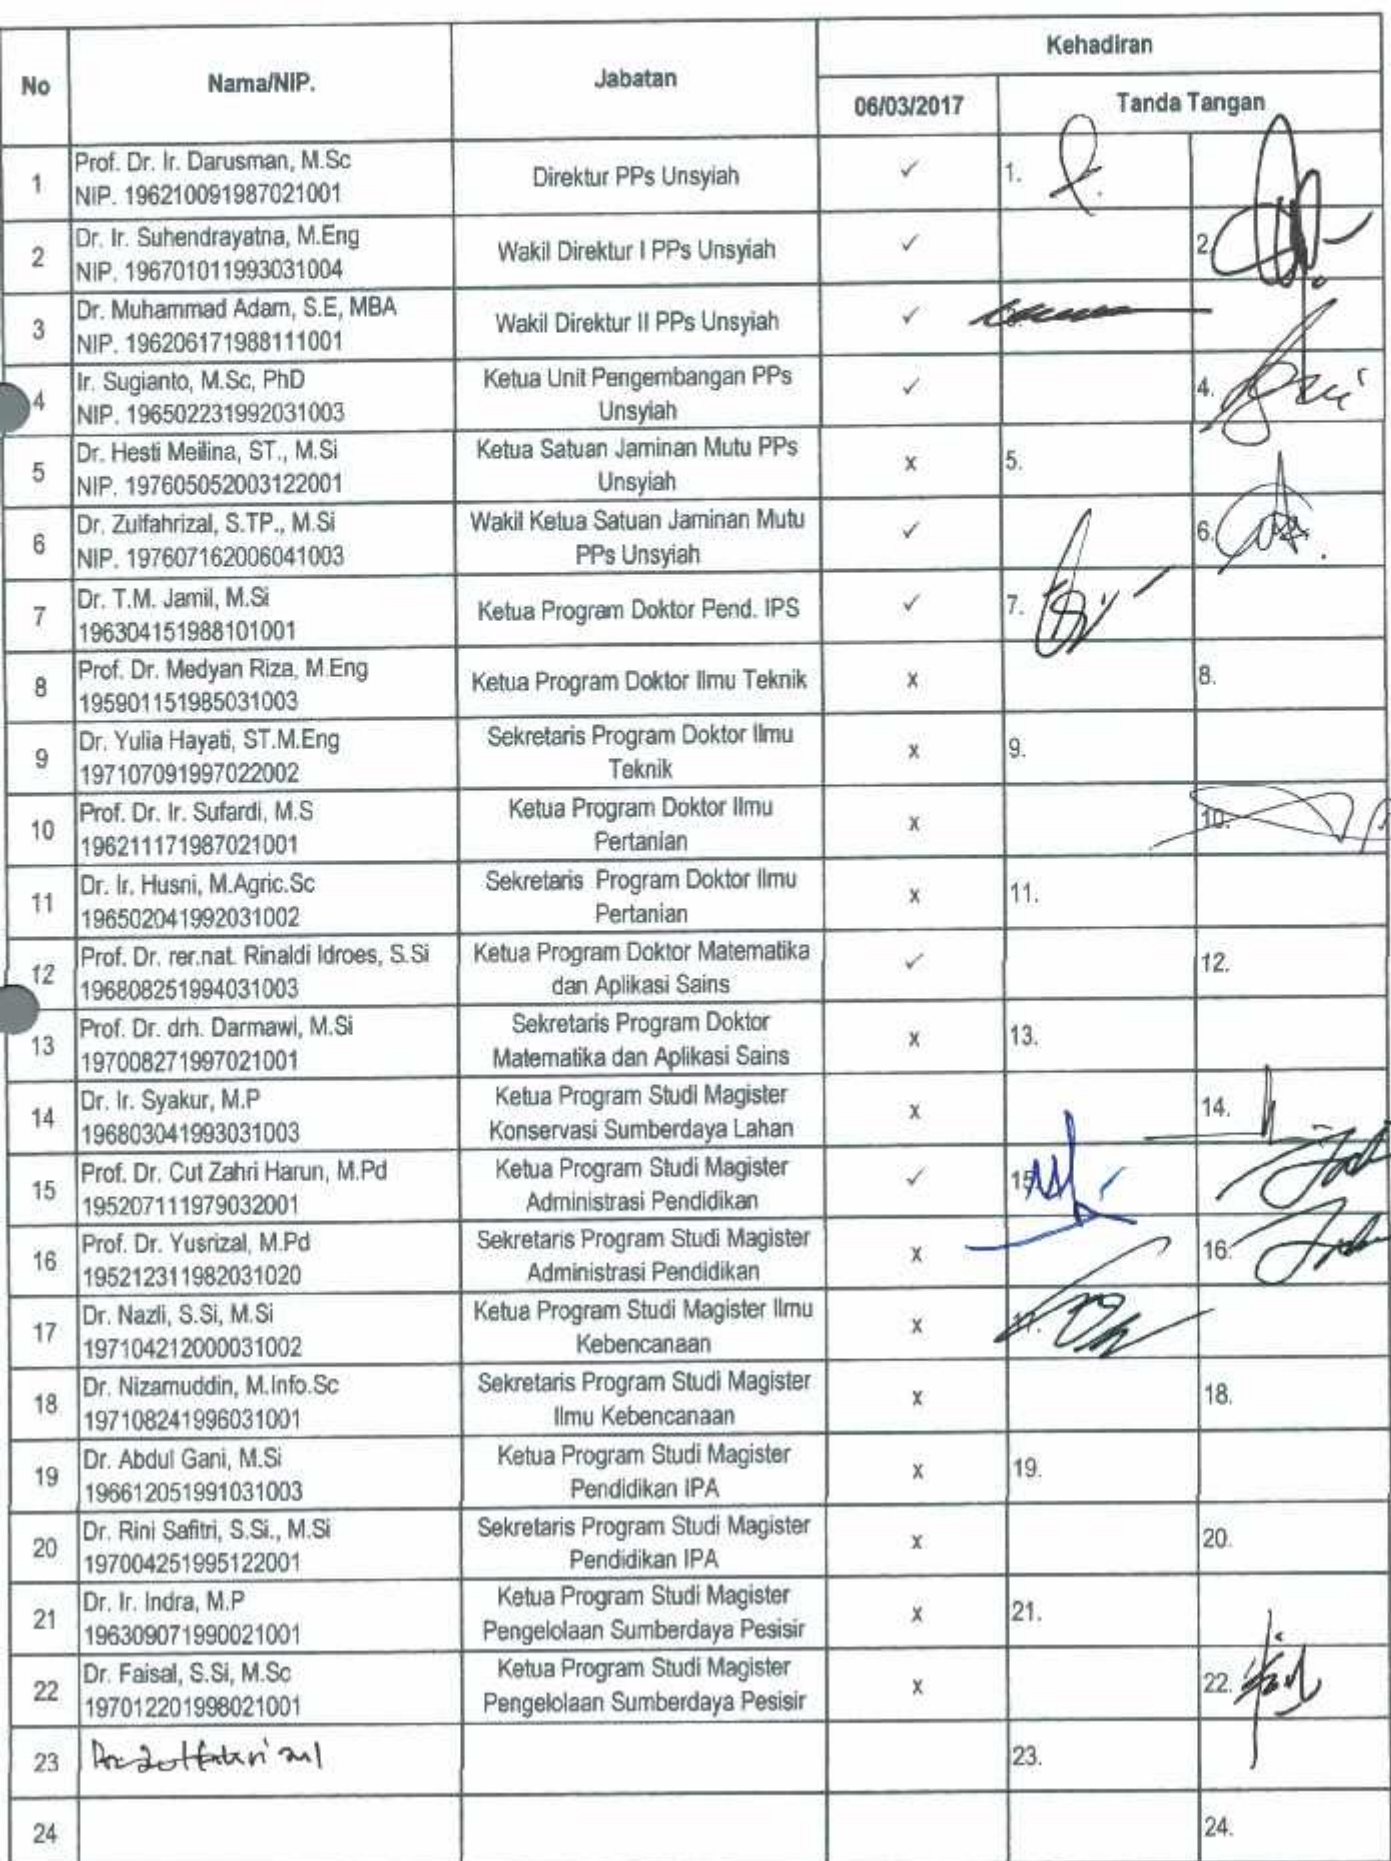 No
Nama/NIP.
Jabatan
Kehadiran
06/03/2017
Tanda Tangan
1
Prof. Dr. Ir. Darusman, M.Sc
NIP. 196210091987021001
Direktur PPs Unsyiah
✓
1.
2
Dr. Ir. Suhendrayatna, M.Eng
NIP. 196701011993031004
Wakil Direktur I PPs Unsyiah
✓
2.
3
Dr. Muhammad Adam, S.E, MBA
NIP. 196206171988111001
Wakil Direktur II PPs Unsyiah
✓
4
Ir. Sugianto, M.Sc, PhD
NIP. 196502231992031003
Ketua Unit Pengembangan PPs
Unsyiah
✓
4.
5
Dr. Hesti Meilina, ST., M.Si
NIP. 197605052003122001
Ketua Satuan Jaminan Mutu PPs
Unsyiah
x
5.
6
Dr. Zulfahrizal, S.TP., M.Si
NIP. 197607162006041003
Wakil Ketua Satuan Jaminan Mutu
PPs Unsyiah
✓
6.
7
Dr. T.M. Jamil, M.Si
196304151988101001
Ketua Program Doktor Pend. IPS
✓
7.
8
Prof. Dr. Medyan Riza, M.Eng
195901151985031003
Ketua Program Doktor Ilmu Teknik
x
8.
9
Dr. Yulia Hayati, ST.M.Eng
197107091997022002
Sekretaris Program Doktor Ilmu
Teknik
x
9.
10
Prof. Dr. Ir. Sufardi, M.S
196211171987021001
Ketua Program Doktor Ilmu
Pertanian
x
10.
11
Dr. Ir. Husni, M.Agric.Sc
196502041992031002
Sekretaris Program Doktor Ilmu
Pertanian
x
11.
12
Prof. Dr. rer.nat. Rinaldi Idroes, S.Si
196808251994031003
Ketua Program Doktor Matematika
dan Aplikasi Sains
✓
12.
13
Prof. Dr. drh. Darmawi, M.Si
197008271997021001
Sekretaris Program Doktor
Matematika dan Aplikasi Sains
x
13.
14
Dr. Ir. Syakur, M.P
196803041993031003
Ketua Program Studi Magister
Konservasi Sumberdaya Lahan
x
14.
15
Prof. Dr. Cut Zahri Harun, M.Pd
195207111979032001
Ketua Program Studi Magister
Administrasi Pendidikan
✓
15
16
Prof. Dr. Yusrizal, M.Pd
195212311982031020
Sekretaris Program Studi Magister
Administrasi Pendidikan
x
16.
17
Dr. Nazli, S.Si, M.Si
197104212000031002
Ketua Program Studi Magister Ilmu
Kebencanaan
x
17.
18
Dr. Nizamuddin, M.Info.Sc
197108241996031001
Sekretaris Program Studi Magister
Ilmu Kebencanaan
x
18.
19
Dr. Abdul Gani, M.Si
196612051991031003
Ketua Program Studi Magister
Pendidikan IPA
x
19.
20
Dr. Rini Safitri, S.Si., M.Si
197004251995122001
Sekretaris Program Studi Magister
Pendidikan IPA
x
20.
21
Dr. Ir. Indra, M.P
196309071990021001
Ketua Program Studi Magister
Pengelolaan Sumberdaya Pesisir
x
21.
22
Dr. Faisal, S.Si, M.Sc
197012201998021001
Ketua Program Studi Magister
Pengelolaan Sumberdaya Pesisir
x
22.
23
23.
24
24.